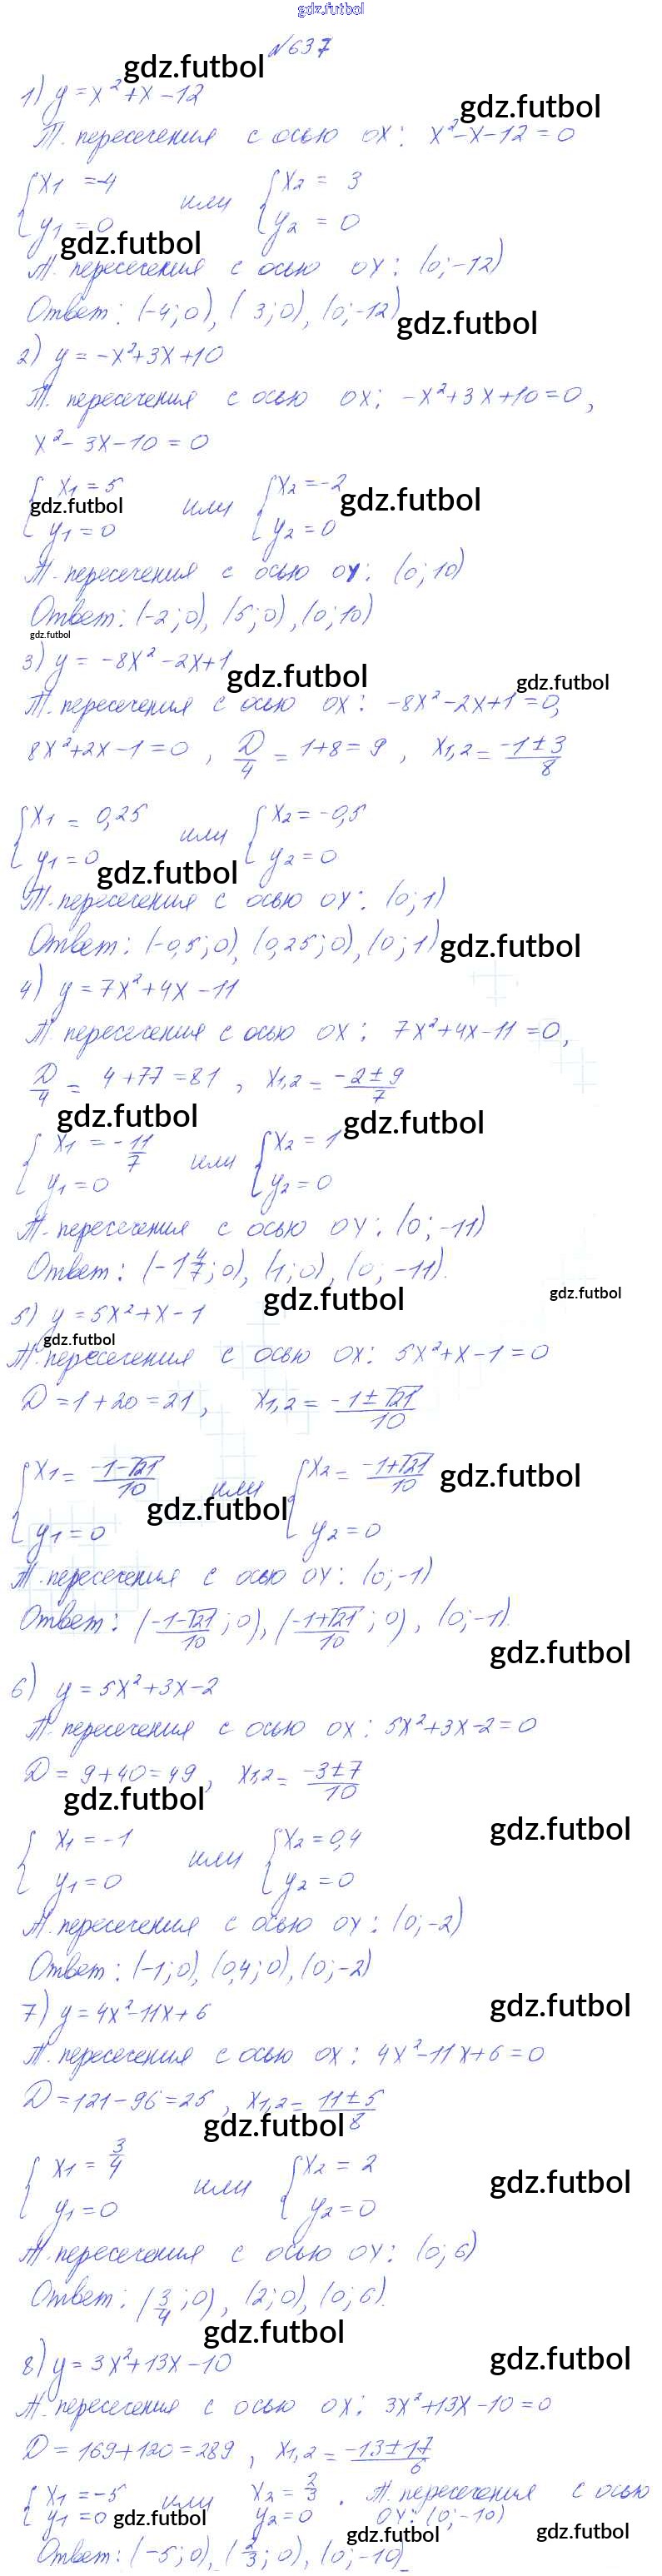 gdz.futbol
№637
gdz.futbol
1) y = x² + x - 12
gdz.futbol
Т. пересечения с осью OX: x² - x - 12 = 0
{ x₁ = -4 или { x₂ = 3
y₁ = 0 y₂ = 0
gdz.futbol
Т. пересечения с осью OY: (0; -12)
Ответ: (-4; 0), (3; 0), (0; -12)
gdz.futbol
2) y = -x² + 3x + 10
Т. пересечения с осью OX: -x² + 3x + 10 = 0,
x² - 3x - 10 = 0
{ x₁ = 5 или { x₂ = -2
gdz.futbol gdz.futbol
y₁ = 0 y₂ = 0
Т. пересечения с осью OY: (0; 10)
Ответ: (-2; 0), (5; 0), (0; 10)
gdz.futbol
3) y = -8x² - 2x + 1
gdz.futbol gdz.futbol
Т. пересечения с осью OX: -8x² - 2x + 1 = 0,
8x² + 2x - 1 = 0, D/4 = 1 + 8 = 9, x₁,₂ = (-1 ± 3)/8
{ x₁ = 0,25 или { x₂ = -0,5
y₁ = 0 y₂ = 0
gdz.futbol
Т. пересечения с осью OY: (0; 1)
Ответ: (-0,5; 0), (0,25; 0), (0; 1)
gdz.futbol
4) y = 7x² + 4x - 11
Т. пересечения с осью OX: 7x² + 4x - 11 = 0,
D/4 = 4 + 77 = 81, x₁,₂ = (-2 ± 9)/7
gdz.futbol gdz.futbol
{ x₁ = -11/7 или { x₂ = 1
y₁ = 0 y₂ = 0
Т. пересечения с осью OY: (0; -11)
Ответ: (-1 4/7; 0), (1; 0), (0; -11).
gdz.futbol gdz.futbol
5) y = 5x² + x - 1
gdz.futbol
Т. пересечения с осью OX: 5x² + x - 1 = 0
D = 1 + 20 = 21, x₁,₂ = (-1 ± √21)/10
{ x₁ = (-1 - √21)/10 или { x₂ = (-1 + √21)/10
gdz.futbol
gdz.futbol
y₁ = 0 y₂ = 0
Т. пересечения с осью OY: (0; -1)
Ответ: ((-1 - √21)/10; 0), ((-1 + √21)/10; 0), (0; -1).
gdz.futbol
6) y = 5x² + 3x - 2
Т. пересечения с осью OX: 5x² + 3x - 2 = 0
D = 9 + 40 = 49, x₁,₂ = (-3 ± 7)/10
gdz.futbol
gdz.futbol
{ x₁ = -1 или { x₂ = 0,4
y₁ = 0 y₂ = 0
Т. пересечения с осью OY: (0; -2)
Ответ: (-1; 0), (0,4; 0), (0; -2)
gdz.futbol
7) y = 4x² - 11x + 6
Т. пересечения с осью OX: 4x² - 11x + 6 = 0
D = 121 - 96 = 25, x₁,₂ = (11 ± 5)/8
gdz.futbol
{ x₁ = 3/4 или { x₂ = 2
gdz.futbol
y₁ = 0 y₂ = 0
Т. пересечения с осью OY: (0; 6)
Ответ: (3/4; 0), (2; 0), (0; 6).
gdz.futbol
gdz.futbol
8) y = 3x² + 13x - 10
Т. пересечения с осью OX: 3x² + 13x - 10 = 0
D = 169 + 120 = 289, x₁,₂ = (-13 ± 17)/6
{ x₁ = -5 или x₂ = 2/3. Т. пересечения с осью
y₁ = 0 y₂ = 0 OY: (0; -10)
gdz.futbol gdz.futbol gdz.futbol
Ответ: (-5; 0), (2/3; 0), (0; -10)